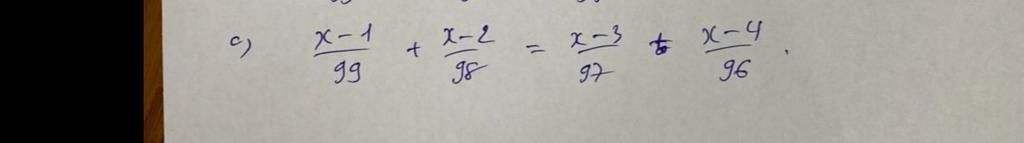 c) (x-1)/99 + (x-2)/98 = (x-3)/97 + (x-4)/96 .